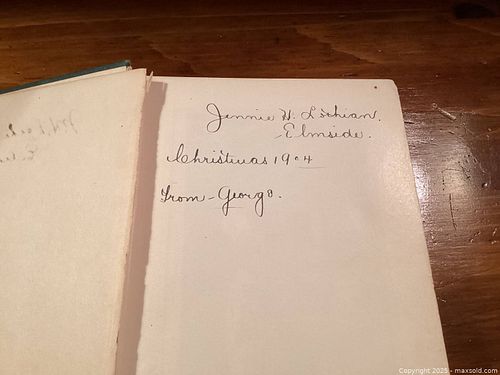 Jennie W. Lothian.
Elmside.
Christmas 1904
From - George.
Copyright 2025 - maxsold.com